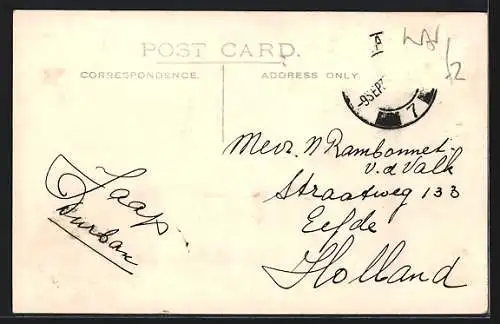 POST CARD.
CORRESPONDENCE.
ADDRESS ONLY.
-9 SEP
7
Mevr. N Rambonnet-
v.d Valk
Straatweg 133
Eefde
Holland
Jaap
Durban